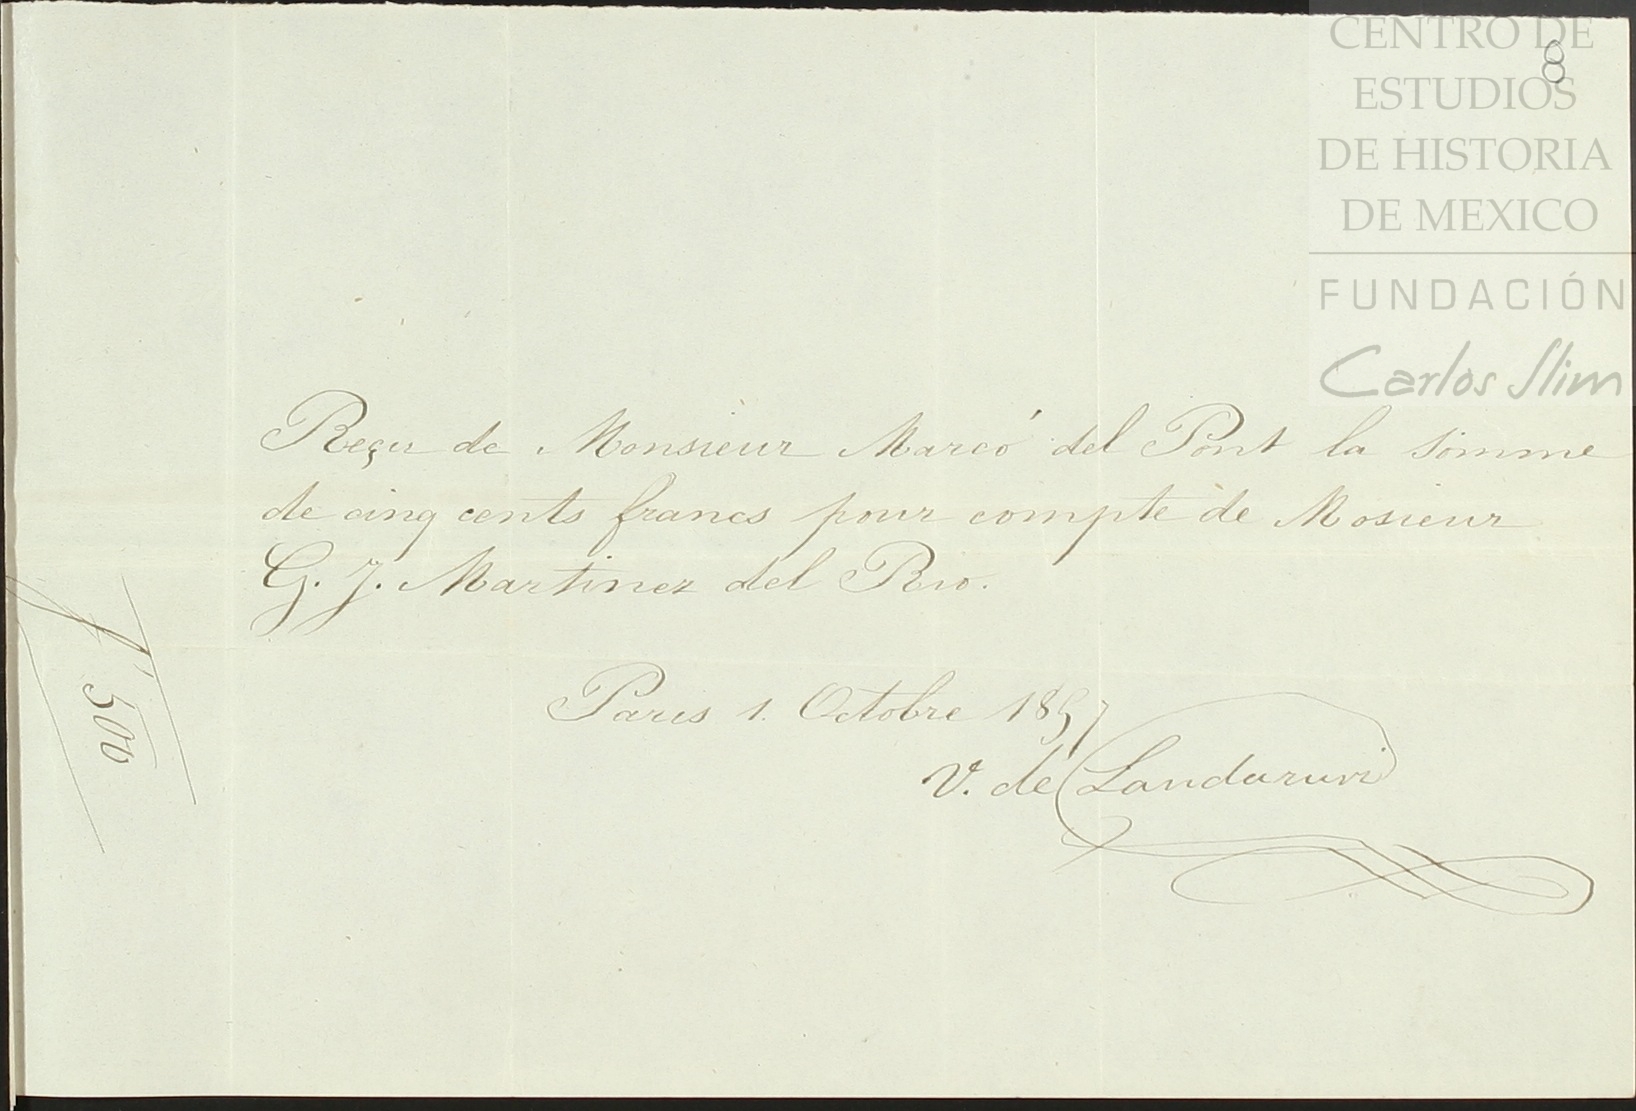 CENTRO DE
ESTUDIOS
DE HISTORIA
DE MEXICO
FUNDACIÓN
Carlos Slim
8
Reçu de Monsieur Marcó del Pont la somme
de cinq cents francs pour compte de Mosieur
G. J. Martinez del Rio.
Paris 1. Octobre 1857
V. de Landaruri
f 500